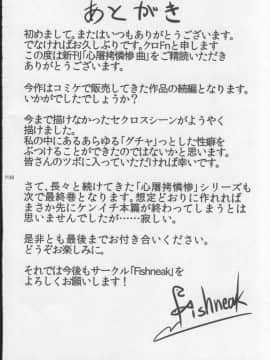 あとがき
初めまして。またはいつもありがとうございます。
でなければお久しぶりです。クロFnと申します
この度は新刊「心屠拷憤惨曲」をご精読いただき
ありがとうございます。
今作はコミケで販売してきた作品の続編となります。
いかがでしたでしょうか?
今まで描けなかったセクロスシーンがようやく
描けました。
私の中にあるあらゆる「グチャ」っとした性癖を
ぶつけることができたのではないかと思います。
皆さんのツボに入っていただければ幸いです。
さて、長々と続けてきた「心屠拷憤惨」シリーズも
次で最終巻となります。想定どおりに作れれば
まさか先にケンイチ本篇が終わってしまうとは
思いませんでしたが……寂しい。
是非とも最後までお付き合いください。
どうぞお楽しみに。
それでは今後もサークル「Fishneak」を
よろしくお願いします!
Fishneak